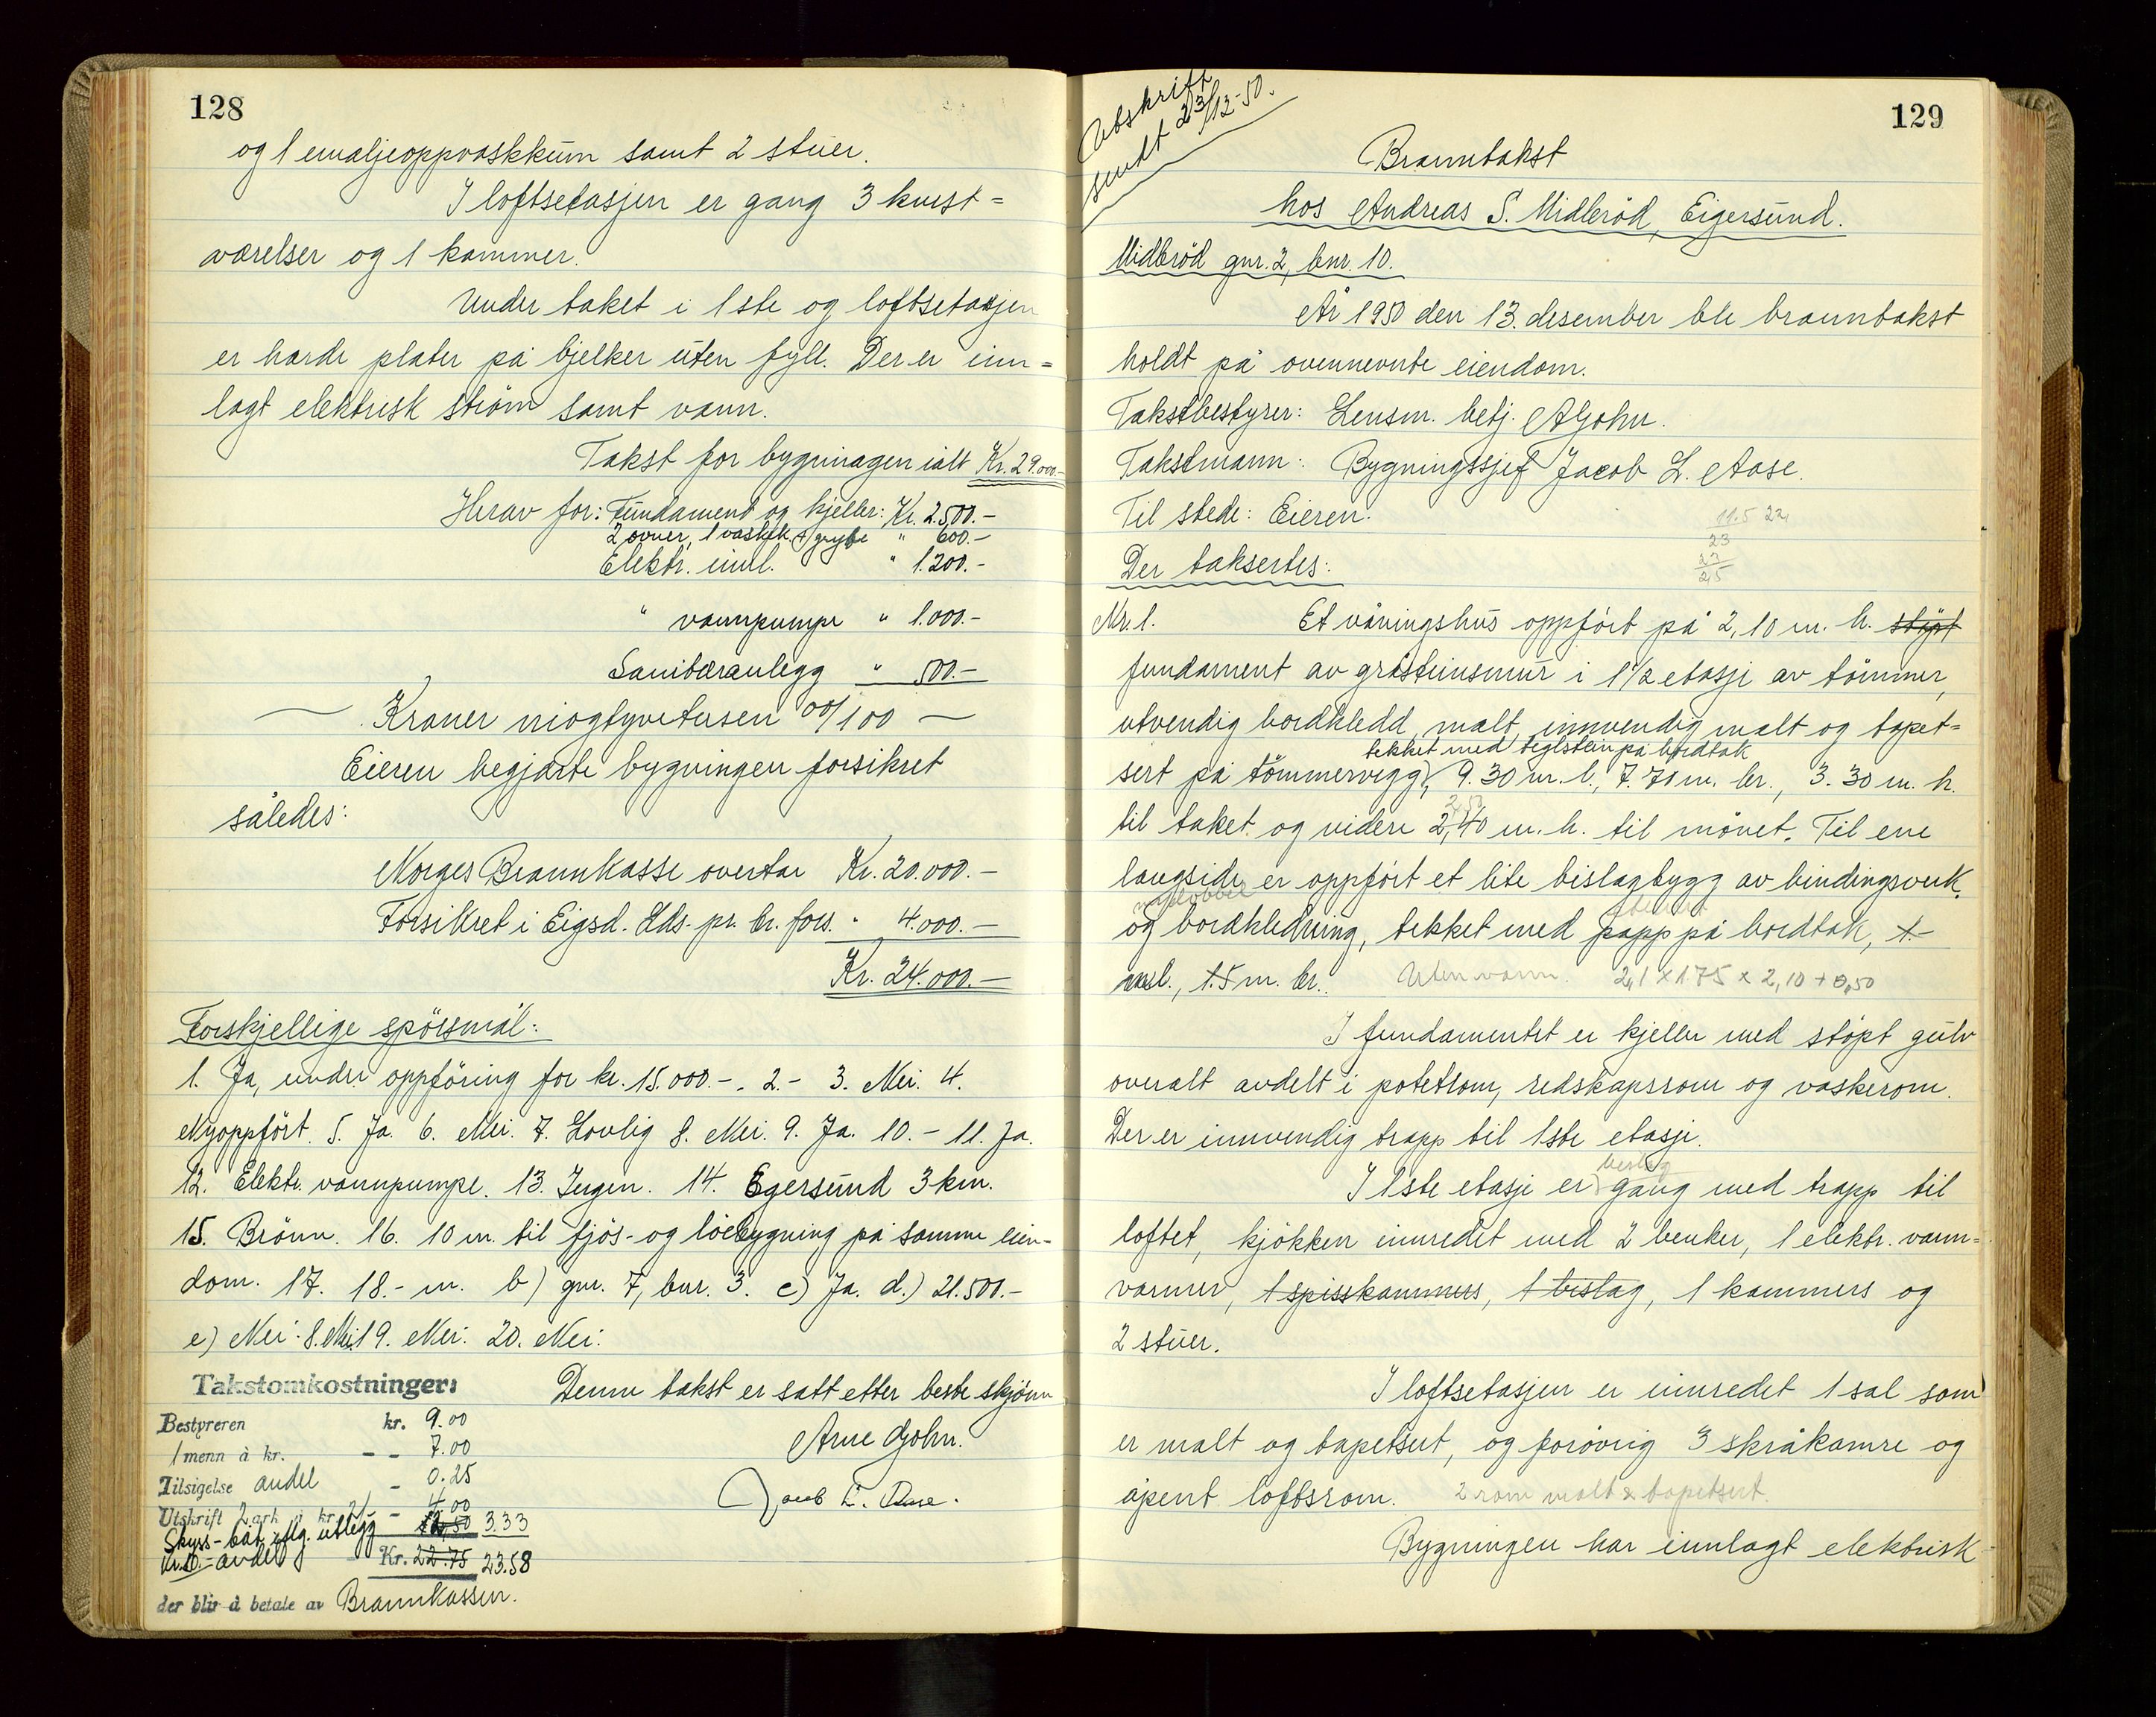 128
og 1 emaljeoppvaskkum samt 2 stuer.
I loftsetasjen er gang 3 kvist=
værelser og 1 kammer.
Under taket i 1ste og loftsetasjen
er harde plater på bjelker uten fyll. Der er inn=
lagt elektrisk strøm samt vann.
Takst for bygningen ialt Kr. 29.000.-
Herav for: Fundament og kjeller: Kr. 2.500.-
2 ovner, 1 vaskek. & gryte " 600.-
Elektr. innl. " 1.200.-
" vannpumpe " 1.000.-
Sanitæranlegg " 500.-
Kroner niogtyvetusen 00/100
Eieren begjærte bygningen forsikret
således:
Norges Brannkasse overtar Kr. 20.000.-
Forsikret i Eigsd. Hds. pr. br. fors. " 4.000.-
Kr. 24.000.-
Forskjellige spørsmål:
1. Ja, under oppføring for kr. 15.000.-. 2.- 3. Nei. 4.
Nyoppført. 5. Ja. 6. Nei. 7. Lovlig 8. Nei. 9. Ja. 10.- 11. Ja.
12. Elektr. vannpumpe. 13. Ingen. 14. Egersund 3 km.
15. Brønn. 16. 10 m. til fjøs- og løebygning på samme eien-
dom. 17. 18.- m. b) gnr. 7, bnr. 3. c) Ja. d.) 21.500.-
e) Nei. 8. Nei 19. Nei. 20. Nei.
Takstomkostninger:
Denne takst er satt etter beste skjønn
Bestyreren kr. 9.00
1 menn à kr. - - 7.00
Arne Gjohn.
Tilsigelse andel - 0.25
Jacob L. Aase.
Utskrift 2 ark à kr. 2/- - 4.00
Skyss- båt iflg. utlegg 2,50 3.33
kr. 10.- andel Kr. 22.75 23.58
der blir å betale av Brannkassen.
129
Avskrift
sendt 23/12-50.
Branntakst
hos Andreas S. Midbrød, Eigersund.
Midbrød gnr. 2, bnr. 10.
År 1950 den 13. desember ble branntakst
holdt på ovennevnte eiendom.
Takstbestyrer: Lensm. betj. A Gjohn.
Takstmann: Bygningssjef Jacob L. Aase.
Til stede: Eieren.
11.5 22,
23
23
2,5
Der taksertes:
Nr. 1. Et våningshus oppført på 2,10 m. h. støpt
fundament av gråsteinsmur i 1 1/2 etasje av tømmer,
utvendig bordkledd, malt, innvendig malt og tapet=
tekket med teglstein på bordtak
sert på tømmervegg, 9.30 m. l., 7.70 m. br., 3.30 m. h.
2,50
til taket og videre 2,40 m. h. til mønet. Til ene
langside er oppført et lite bislagbygg av bindingsverk
og bordkledning, tekket med papp på bordtak, 1.-
m. l., 1.5 m. br. Uten vann. 2,1 x 1.75 x 2,10 + 0,50
I fundamentet er kjeller med støpt gulv
overalt avdelt i potetrom, redskapsrom og vaskerom.
Der er innvendig trapp til 1ste etasje.
bislag
I 1ste etasje er gang med trapp til
loftet, kjøkken innredet med 2 benker, 1 elektr. vann=
varmer, 1 spisskammers, 1 bislag, 1 kammers og
2 stuer.
I loftsetasjen er innredet 1 sal som
er malt og tapetsert, og forøvrig 3 skråkamre og
åpent loftsrom. 2 rom malt & tapetsert.
Bygningen har innlagt elektrisk